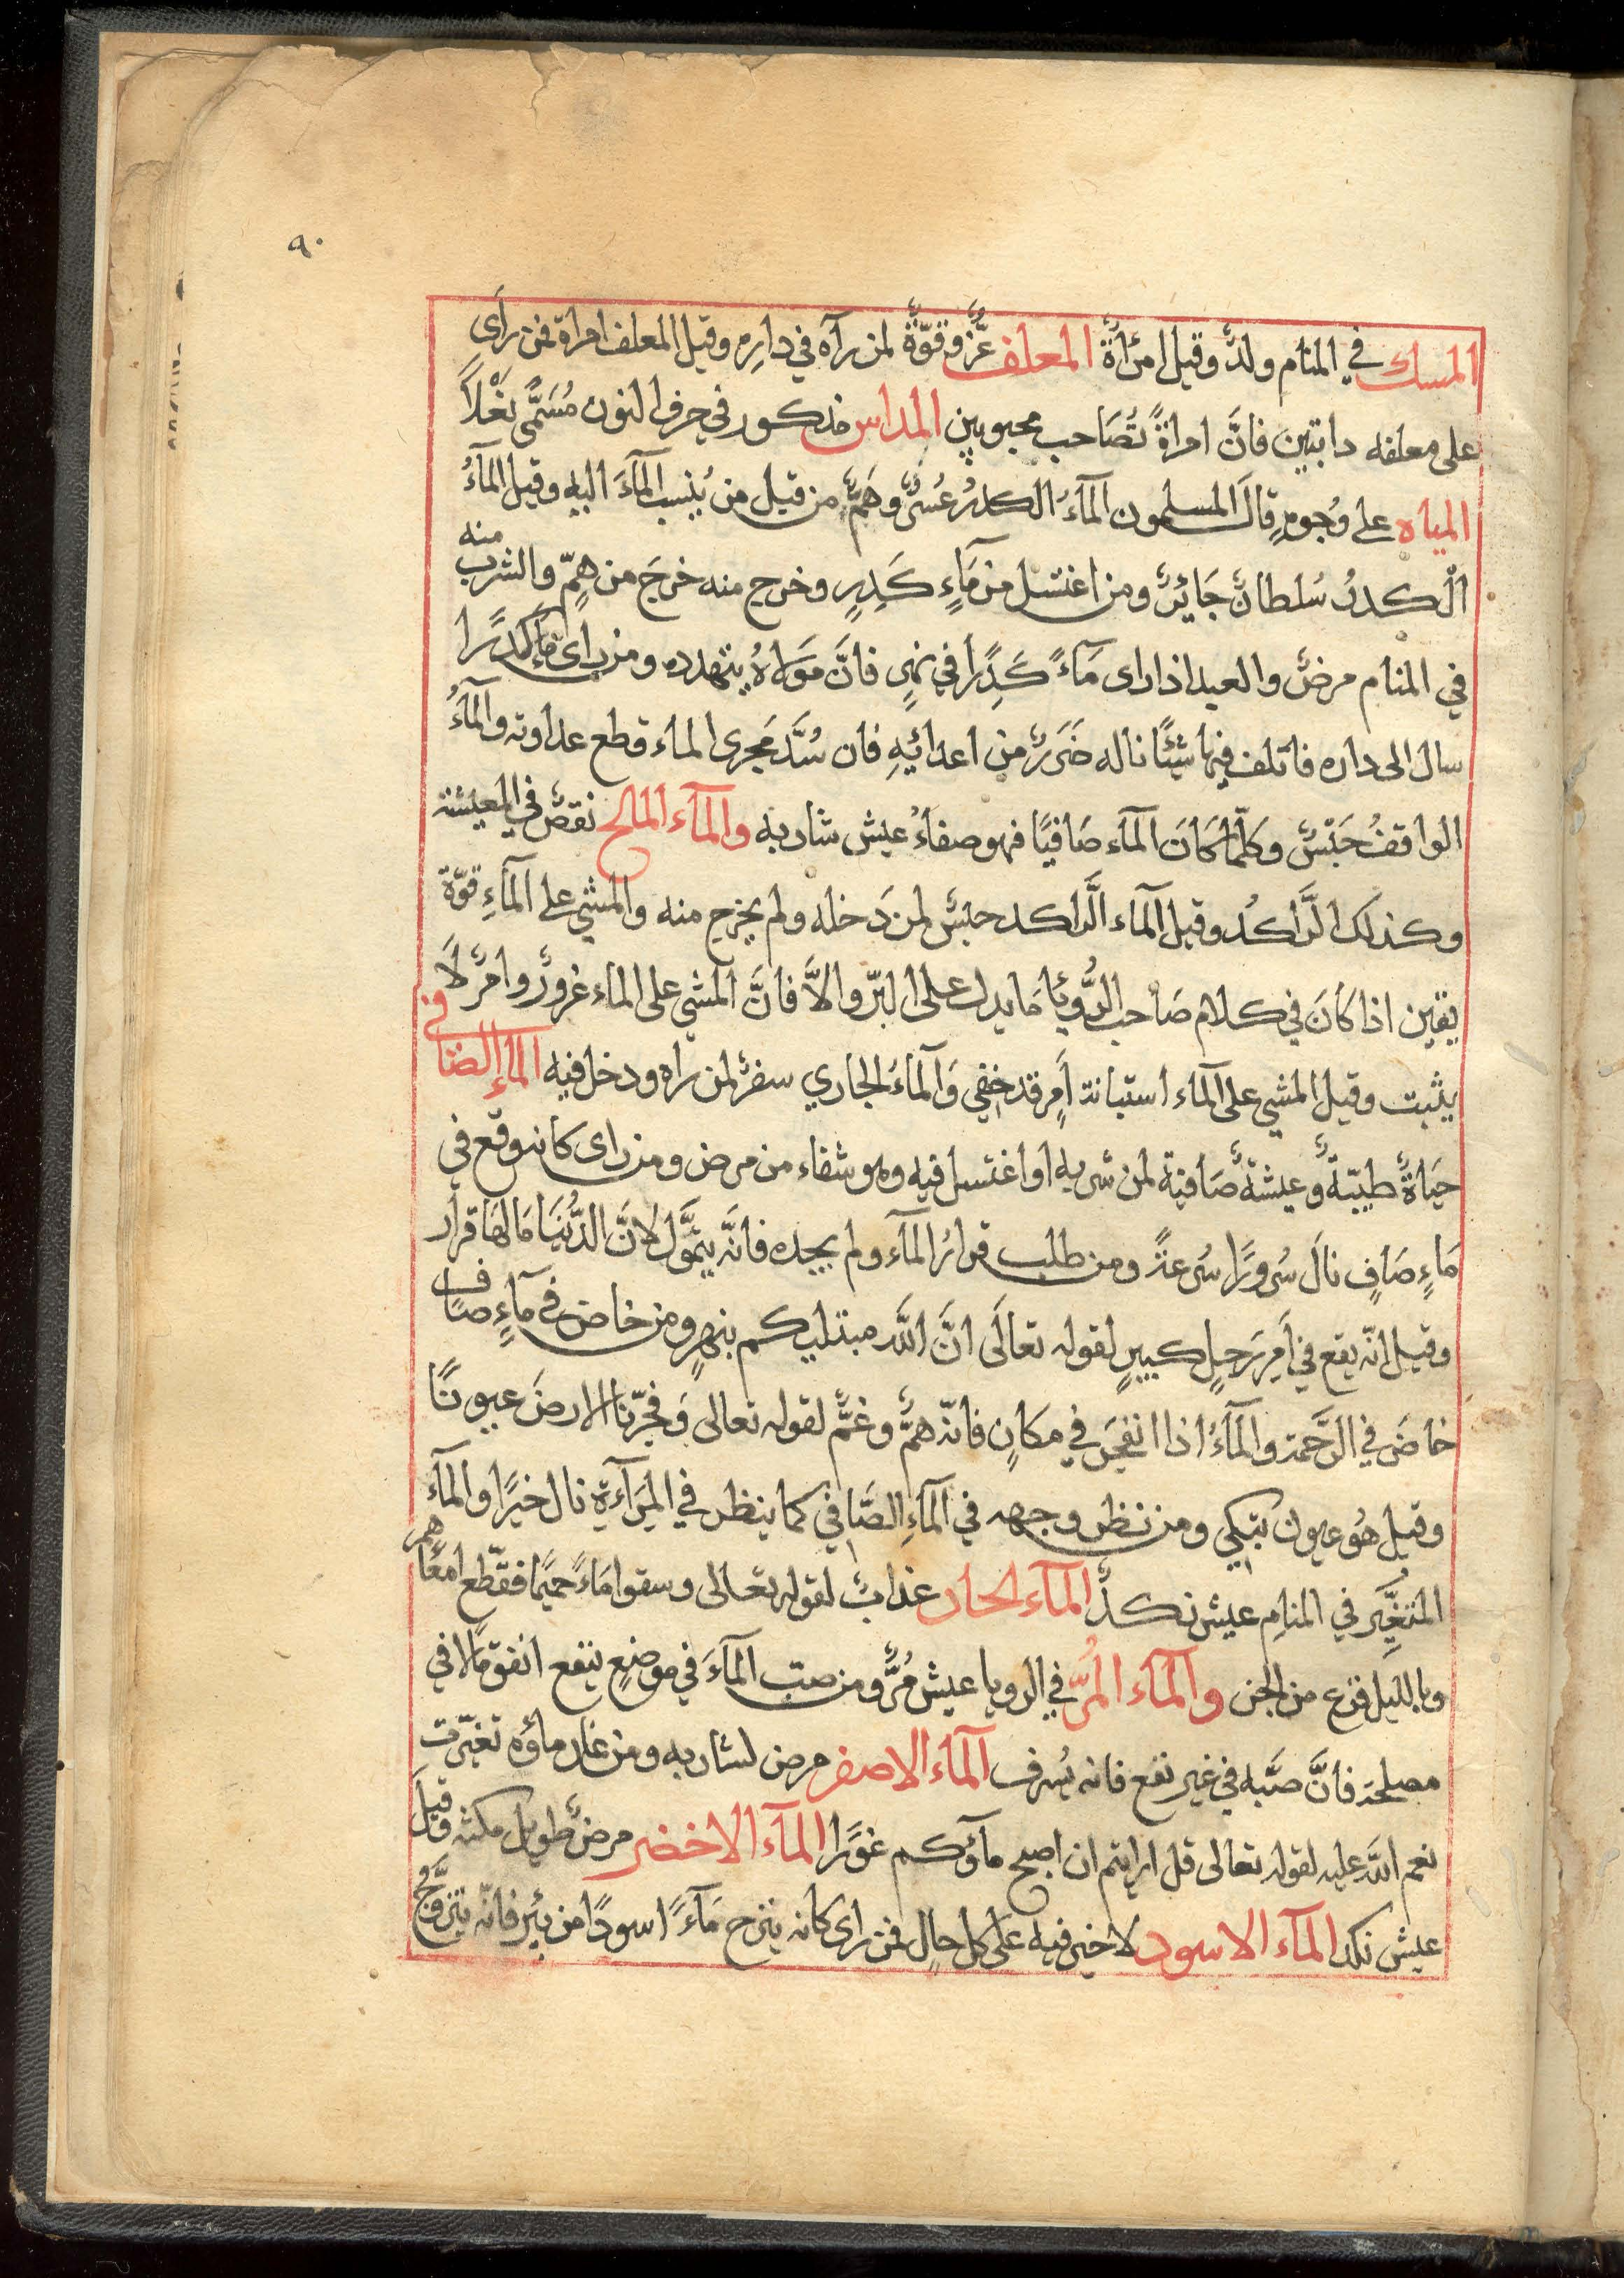 ٩٠
المسك في المنام ولدٌ وقيل امرٔاةٌ المعلف عزٌّ وقوّةٌ لمن رآه في دارِهِ وقيل المعلف امراة فمن رأى
على معلفه دابتين فانَّ امراةً تُصَاحب محبوبين المداس مذكور في حرف النون مُسَمَّى نَعْلاً
المياه على وُجوهٍ قالَ المسلمون المآءُ الكدرُ عُسرٌ وهَمٌّ من قبل من يُنسب المآءَ اليهِ وقيل المآءُ
الْكدرُ سُلطانٌ جَايرٌ ومن اغتسل من مَآءٍ كَدِرٍ وخرج منه خرجَ من همٍّ والشرب منه
في المنام مرضٌ والعبد اذا راى مَآءً كَدِرًا في نهرٍ فانَّ مَولاهُ يتهدده ومن راى مآءً كَدِرًا
سال الى داره فاتلف فيها شيئًا ناله ضَرَرٌ من اعدائِهِ فان سُدَّ مَجرى الماء قطع عداوته والمآءُ
الواقفُ حَبْسٌ وكلّما كَانَ المآء صَافيًا فهو صفاءُ عيش شاربه والمآء المالح نقصٌ في المعيشة
وكذلك الرَّاكدُ وقيل المآء الرَّاكد حبسٌ لمن دَخله ولم يخرج منه والمشي على المآءِ قوّة
يقين اذا كَانَ في كلام صَاحب الرُّويَا مَا يدل على البّر والاَّ فانَّ المشي على الماء غرورٌ وامرٌ لاَ
يثبت وقيل المشي على المآء استبانة اَمرٍ قد خفي وَالمآءُ الجاري سفرٌ لمن راه ودخل فيه المآء الصافي
حيَاةٌ طيّبةٌ وعيشةٌ صَافيةٌ لمن شربه او اغتسل فيه وهو شفاء من مرض ومن راى كانه وقع في
مَاءٍ صَافٍ نالَ سُرورًا سُرعةً ومن طلب قرارُ المآء ولم يجده فانَّه يتموَّل لانَّ الدُّنيَا مَا لهَا قرار
وقيل انّه يقع في اَمرِ رَجلٍ كبيرٍ لقوله تعالَى انَّ اللّه مبتليكم بنهرٍ ومن خاض في مآءٍ صَافٍ
خاضَ في الرَّحمة والمآءُ اذا انفجَرَ في مكانٍ فانّه همٌّ وغمٌّ لقوله تعالى وَفجّرنا الارضَ عيونًا
وقيل هُو عيون تبكي ومن نظر وجهه في المآءِ الصَّافي كما ينظر في المِرَآءةِ نال خيرًا والمآء
المتغيِّر في المنامِ عيش نكدٌ المآء الحار عذابٌ لقوله تعالى وسقوا مَاءً حميًما فقطّع امعاهم
وبالليل فزع من الجن والمآء المُرّ في الرويا عيش مُرٌّ ومن صبّ المآءَ في موضعٍ ينفع انفق مَالا في
مصلحة فانَّ صَبّه في غير نفع فانه يُسرف المآء الاصفر مرض لشاربه ومن غار ماؤه تغيّرت
نعم اللّه عليه لقوله تعالى قل ارايتم ان اصبح مآؤكم غوًرا المآء الاخضر مرضٌ طويل مكثه وقيلَ
عيش نكد المآء الاسود لا خير فيه على كل حال فمن راى كانه ينزح مَآءً اسودًا من بئرٍ فانّه يتزوَّج